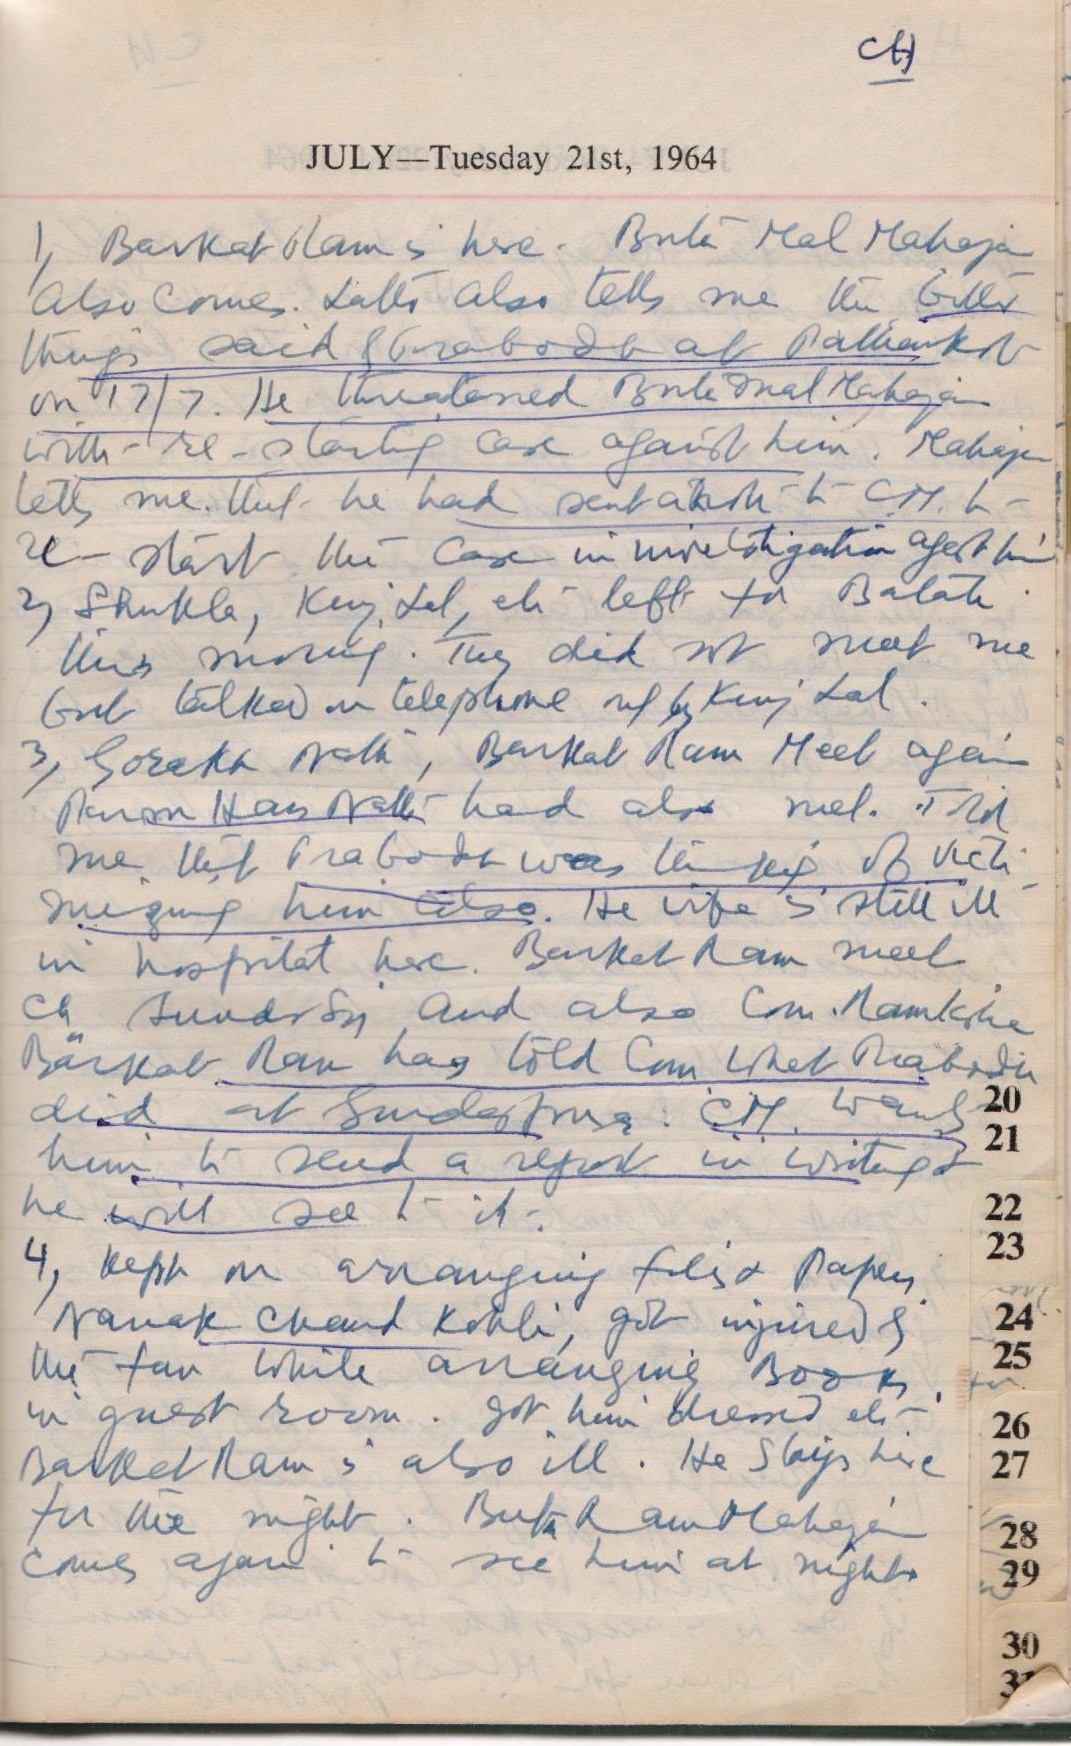 CH
JULY—Tuesday 21st, 1964
1, Barkat Ram is here. Buta Mal Mahajan
also comes. Lalto also tells me the bitter
things said by Prabodh at Pathankot
on 17/7. He threatened Buta Mal Mahajan
with re-starting case against him. Mahajan
tells me that he had sent a to CM. to
re-start the case in investigation agest him
2, Shukla, Kunj Lal, etc left for Batala
this morning. They did not meet me
but talked on telephone by Kunj Lal.
3, Gorakh Nath, Barkat Ram Meet again
Hans Nath had also met. Told
me that Prabodh was thinking of victi-
mizing him also. He wife is still ill
in hospital here. Barkat Ram meet
Ch Sunder Singh and also Com. Ramkishan
Barkat Ram has told Com what Prabodh
did at Sundarpura. CM. wants
him to send a report in writing &
he will see to it.
4, Kept on arranging files & Papers
Nanak Chand Kohli, got injured by
the fan while arranging Books
in guest room. got him dressed etc
Barkat Ram is also ill. He stays here
for the night. Buta Ram Mahajan
comes again to see him at night.
20
21
22
23
24
25
26
27
28
29
30
31